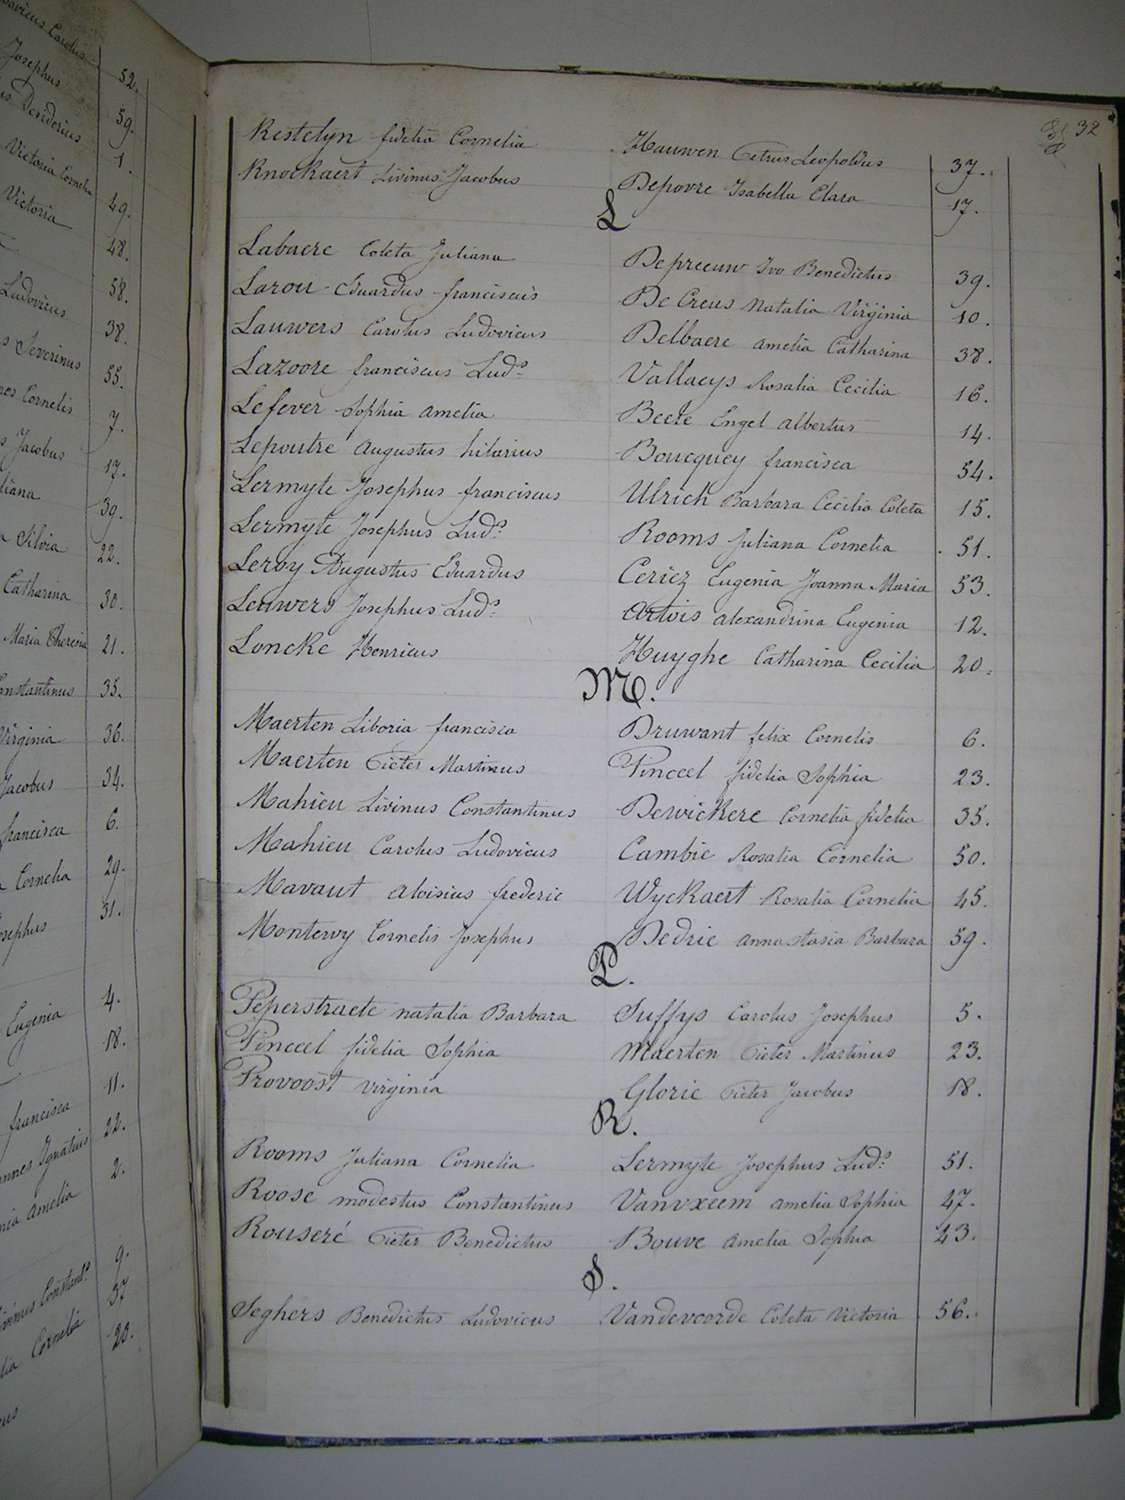 52.
Josephus 59.
Desiderius 1.
Victoria Cornelia 49.
Victoria 48.
58.
Ludovicus 38.
Severinus 55.
Cornelis 7.
Jacobus 17.
39.
Silvia 22.
Catharina 30.
Maria Theresia 21.
Constantinus 35.
Virginia 36.
Jacobus 34.
francisca 6.
Cornelia 29.
31.
4.
Eugenia 18.
11.
francisca 22.
Ignatius 2.
amelia
9.
37
Cornelia 20.
32
Restelyn fidelia Cornelia Hauwen Petrus Leopoldus 37.
Knockaert Livinus Jacobus Depovre Isabella Clara 17.
L
Labaere Coleta Juliana Depreeuw Ivo Benedictus 39.
Larou Eduardus franciscus De Creus Natalia Virginia 10.
Lauwers Carolus Ludovicus Delbaere amelia Catharina 38.
Lazoore franciscus Lud.s Vallaeys Rosalia Cecilia 16.
Lefever Sophia amelia Beele Engel albertus 14.
Lepoutre augustus hilarius Boucquey francisca 54.
Lermyte Josephus franciscus Ulrich Barbara Cecilia Coleta 15.
Lermyte Josephus Lud.s Rooms Juliana Cornelia 51.
Leroy Augustus Eduardus Ceriez Eugenia Joanna Maria 53.
Leuwers Josephus Lud.s Artois alexandrina Eugenia 12.
Loncke Henricus Huyghe Catharina Cecilia 20.
M.
Maerten Liboria francisca Druwant felix Cornelis 6.
Maerten Pieter Martinus Pinceel fidelia Sophia 23.
Mahieu Livinus Constantinus Dewickere Cornelia fidelia 35.
Mahieu Carolus Ludovicus Cambie Rosalia Cornelia 50.
Mavaut aloisius frederic Wyckaert Rosalia Cornelia 45.
Montervy Cornelis Josephus Dedrie annastasia Barbara 59.
P.
Peperstraete natalia Barbara Suffys Carolus Josephus 5.
Pinceel fidelia Sophia Maerten Pieter Martinus 23.
Provoost virginia Glorie Pieter Jacobus 18.
R.
Rooms Juliana Cornelia Lermyte Josephus Lud.s 51.
Roose modestus Constantinus Vanvxeem amelia Sophia 47.
Rouseré Pieter Benedictus Bouve amelia Sophia 43.
S.
Seghers Benedictus Ludovicus Vandevoorde Coleta Victoria 56.